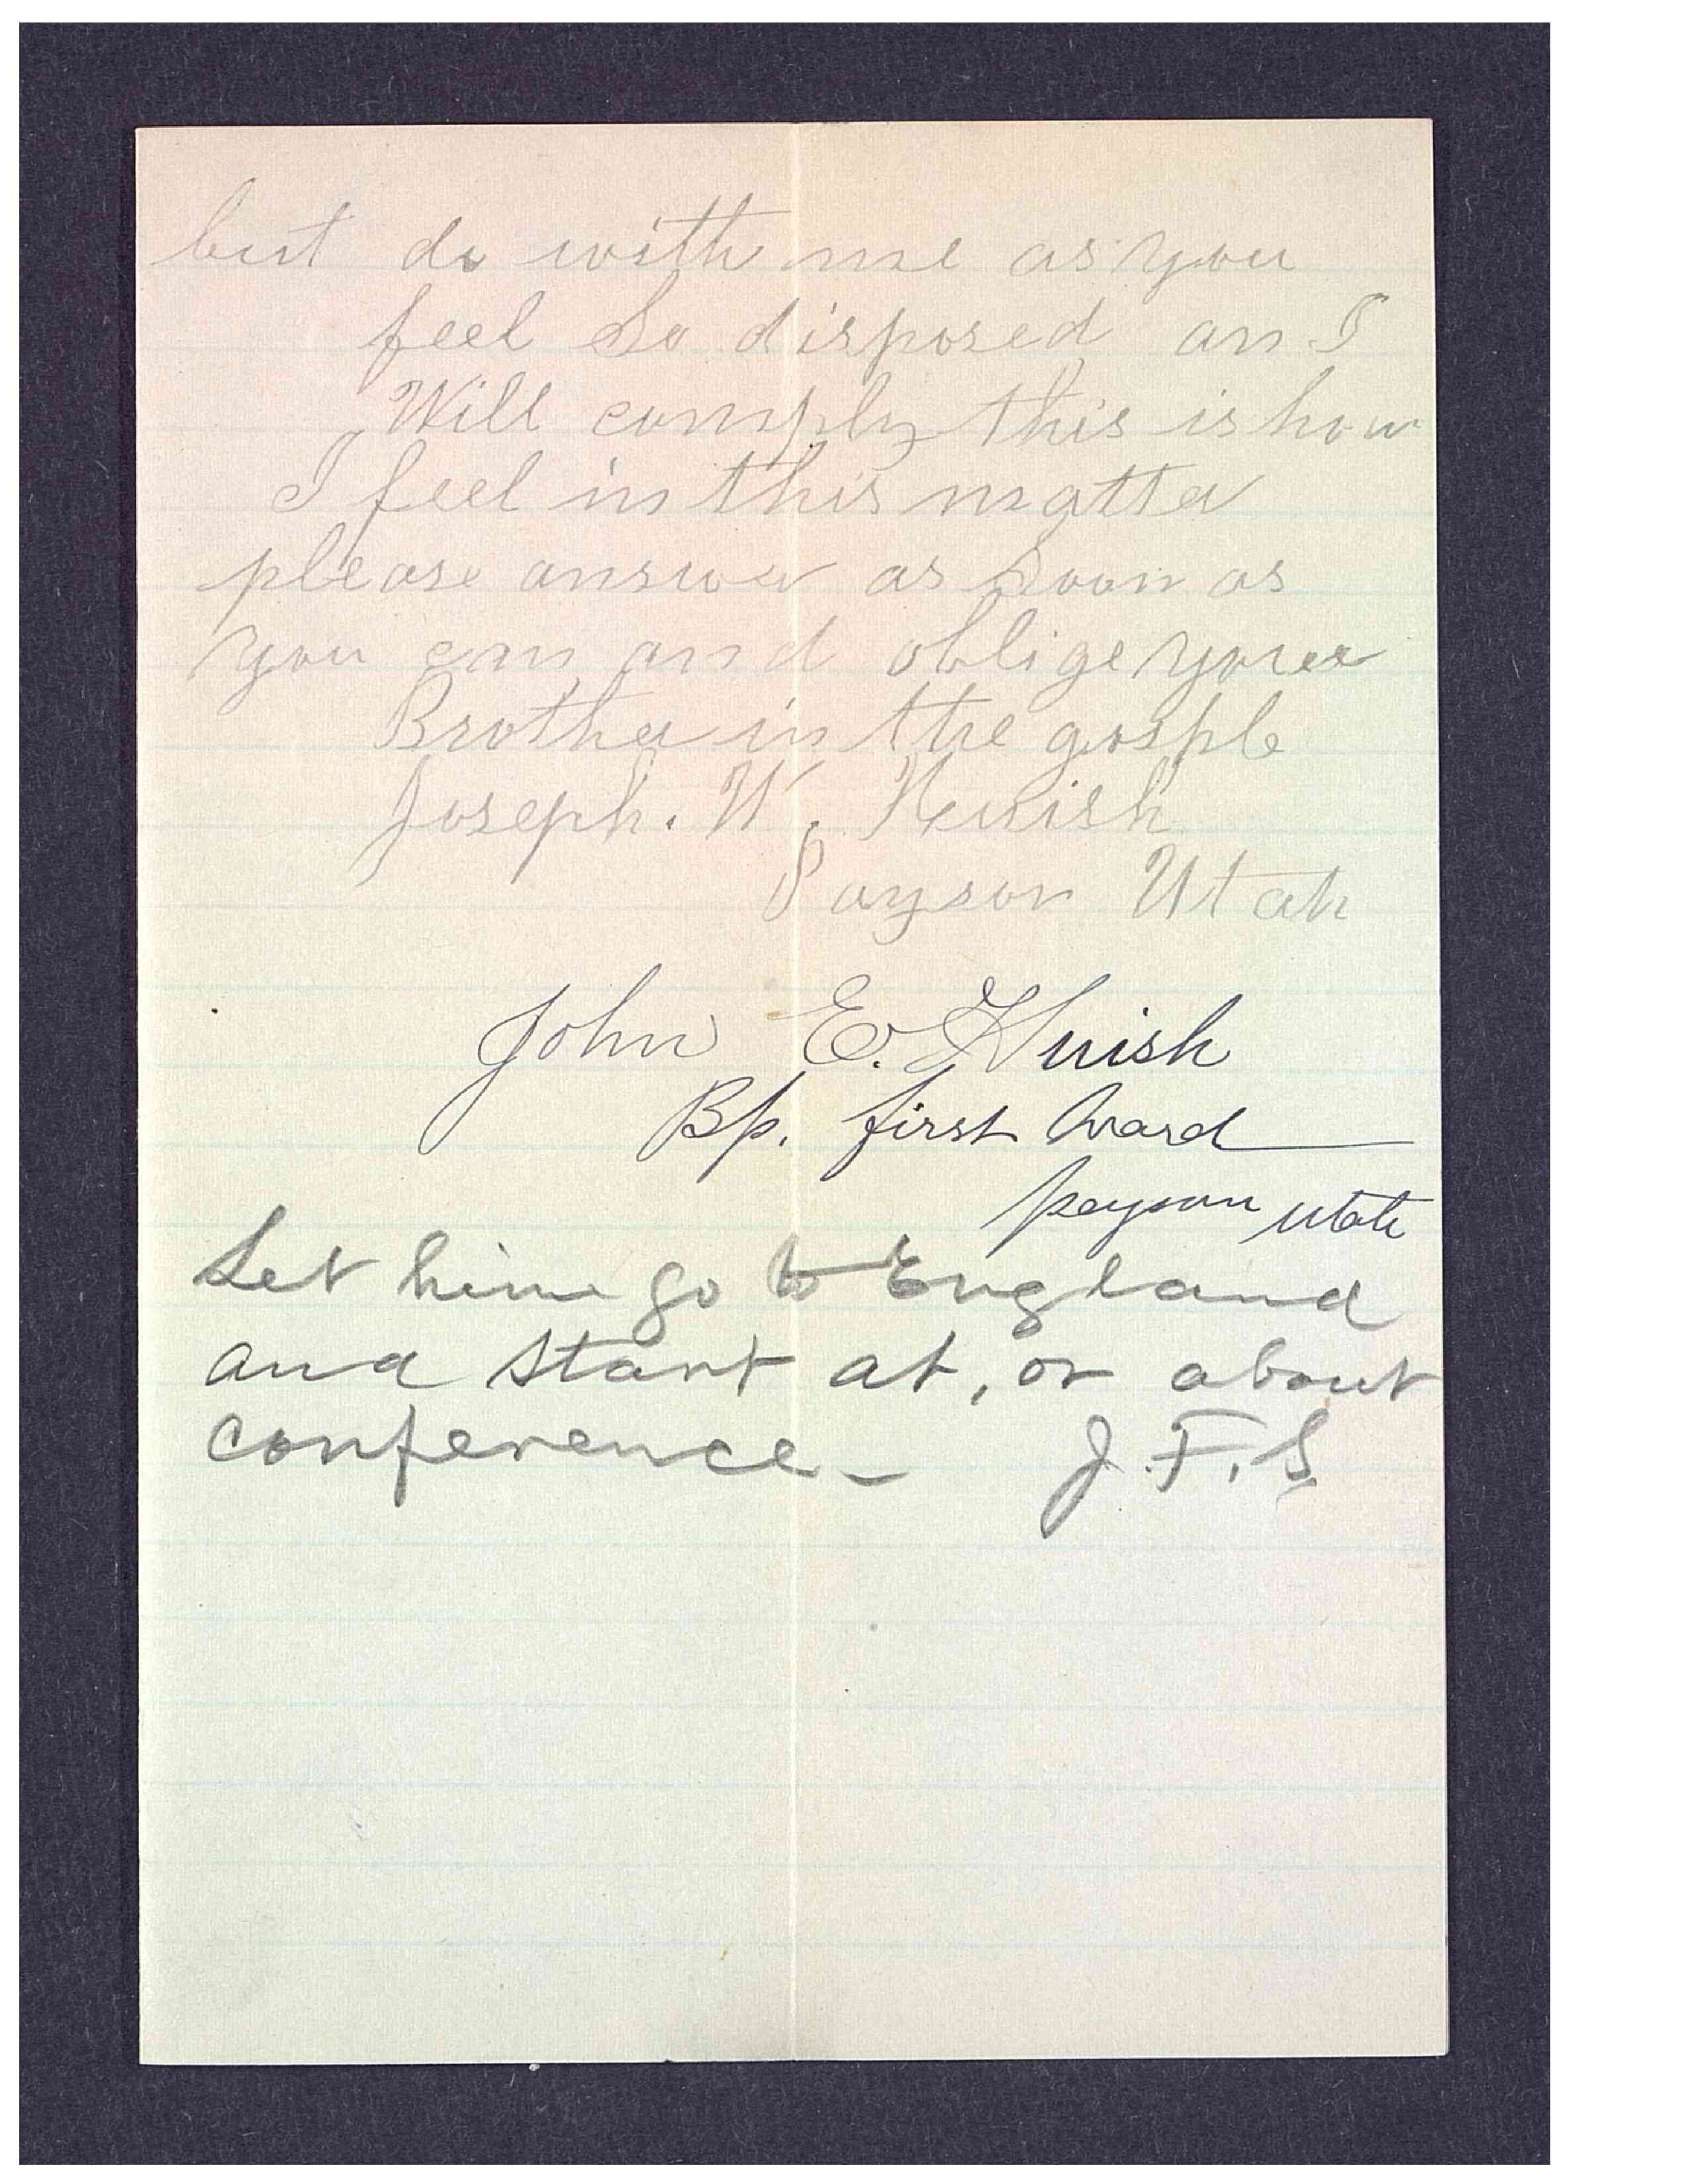 but do with me as you
feel So disposed an I
Will comply this is how
I feel in this matter
please answer as Soon as
you can and oblige youer
Brother in the gosple
Joseph. W. Huish
Payson Utah
John E. Huish
Bp. first Ward
payson utah
Let him go to England
and start at, or about
conference— J.F.S.